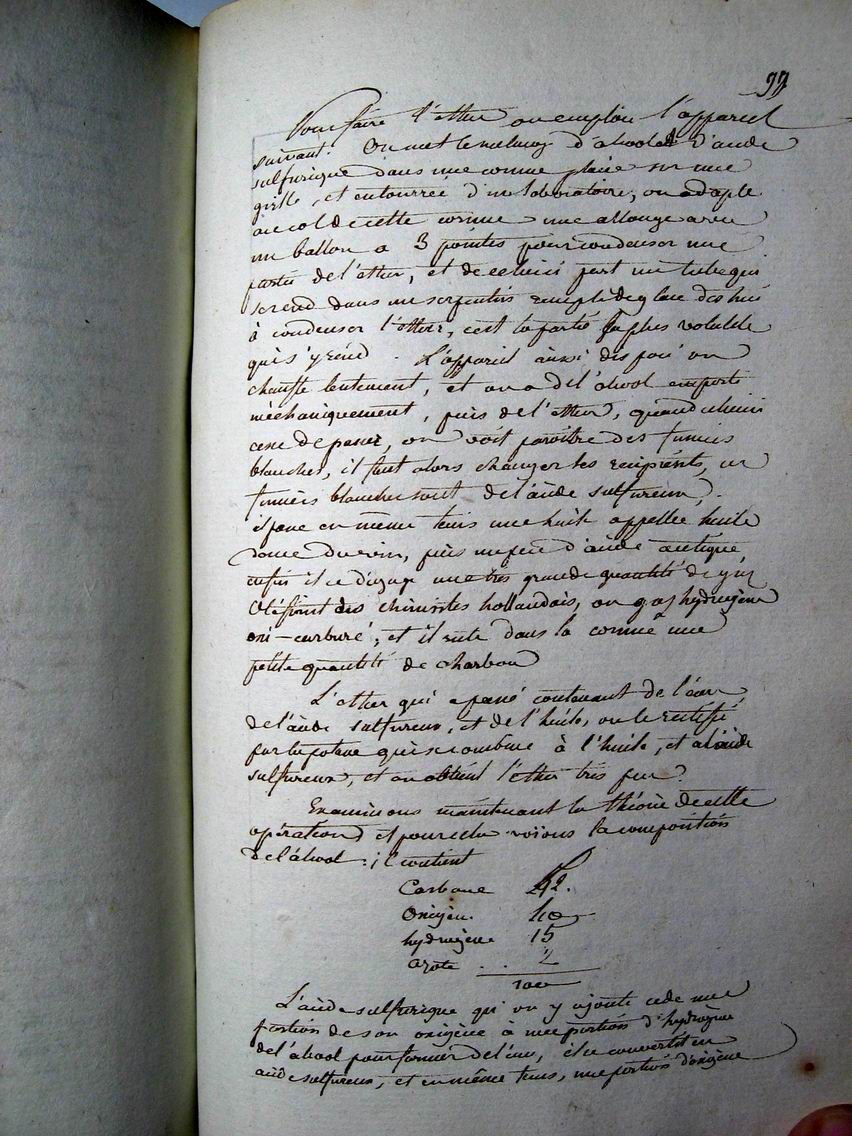 99
Pour faire l'ether on emploie l'appareil
suivant. On met le melange d'alcool et d'acide
sulfurique dans une cornue placée sur une
grille, et entourrée d'un laboratoire, on adapte
au col de cette cornue une allonge avec
un ballon a 3 pointes pour condenser une
partie de l'ether, et de celui ci part un tube qui
se rend dans un serpentin rempli de glace destiné
à condenser l'ether, c'est la partie la plus volatile
qui s'y rend. L'appareil ainsi disposé on
chauffe lentement, et on a de l'alcool emporté
méchaniquement, puis de l'ether, quand celui ci
cesse de passer, on voit paroitre des fumées
blanches, il faut alors changer les recipients, ces
fumées blanches sont de l'acide sulfureux,
il passe en même tems une huile appellée huile
douce du vin, puis un peu d'acide acétique,
enfin il se dégage une très grande quantité de gaz
oléfiant des chimistes hollandais, ou gaz hydrogène
oxi-carburé, et il reste dans la cornue une
petite quantité de charbon
L'ether qui a passé contenant de l'eau
de l'acide sulfureux, et de l'huile, on le rectifie
par la potasse qui se combine à l'huile, et à l'acide
sulfureux, et on obtient l'éther très pur.
Examinons maintenant la théorie de cette
opération et pour cela voions la composition
de l'alcool : il contient
Carbone 42.
Oxigène. 40
hydrogène 15
azote .. 2
100
L'acide sulfurique qu'on y ajoute cede une
portion de son oxigène à une portion d'hydrogène
de l'alcool pour former de l'eau, il se convertit en
acide sulfureux, et en même tems, une portion d'oxigène